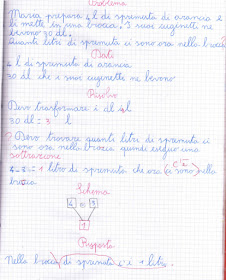 Problema
Marco prepara 4 l di spremuta di arancia e
li mette in una brocca. I suoi cuginetti ne
bevono 30 dl.
Quanti litri di spremuta ci sono ora nella brocca
Dati
4 l di spremuta di arancia
30 dl che i suoi cuginetti ne bevono
Risolvo
Devo trasformare i dl
30 dl = 3 l
Devo trovare quanti litri di spremuta ci
sono ora nella brocca quindi eseguo una
sottrazione
4-3=1 litro di spremuta che ora ci sono nella
brocca
Schema
4 3
1
Risposta
Nella brocca di spremuta c'è 1 litro.